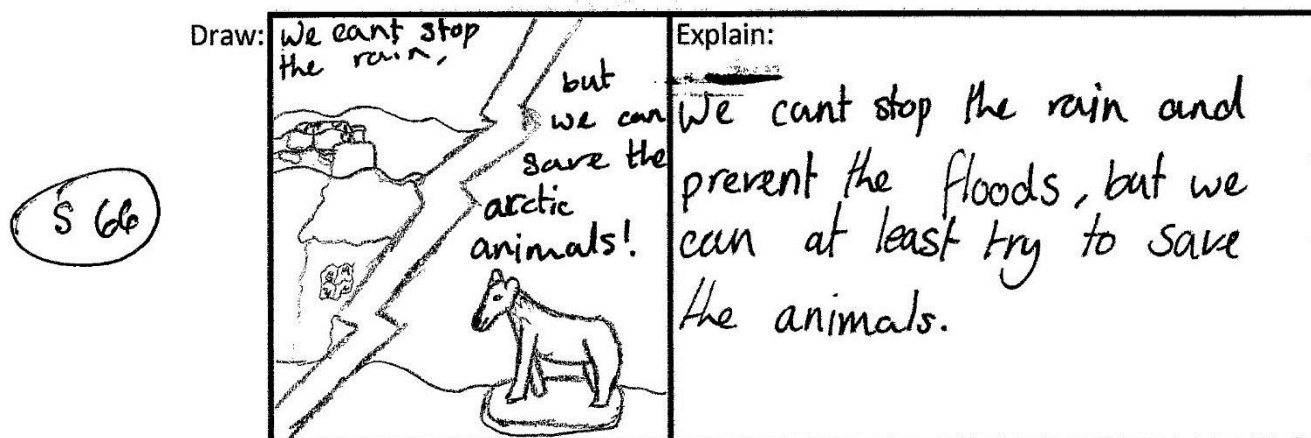 Draw:
We cant stop
the rain,
but
we can
save the
arctic
animals!
Explain:
We cant stop the rain and
prevent the floods, but we
can at least try to save
the animals.
S 66